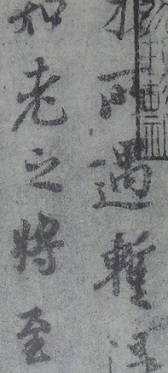 於所遇暫得
知老之將至